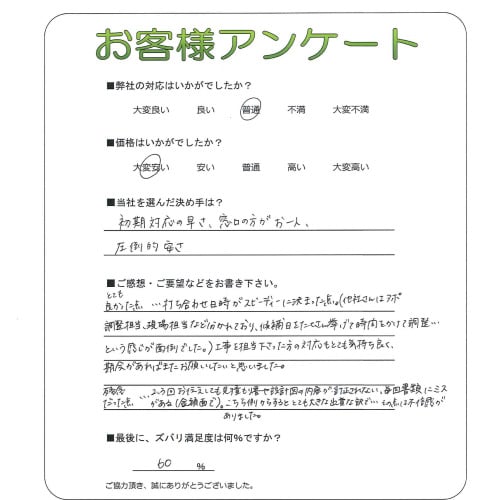 お客様アンケート
■弊社の対応はいかがでしたか?
大変良い 良い 普通 不満 大変不満
■価格はいかがでしたか?
大変安い 安い 普通 高い 大変高い
■当社を選んだ決め手は?
初期対応の早さ、窓口の方がお一人、
圧倒的安さ
■ご感想・ご要望などをお書き下さい。
とても
良かった点 …打ち合わせ日時がスピーディーに決まった点。(他社さんはアポ
調整担当、現場担当など分かれており、候補日をたくさん挙げて時間をかけて調整…
という感じが面倒でした。)工事を担当下さった方の対応もとても気持ち良く、
機会があればまたお願いしたいと思いました。
残念
だった点 …2、3回お伝えしても見積もり書や設計図の内容が訂正されない、毎回書類にミス
がある(金額面で)。こちら側からするととても大きな出費な訳で…その点は不信感が
ありました。
■最後に、ズバリ満足度は何%ですか?
60 %
ご協力頂き、誠にありがとうございました。